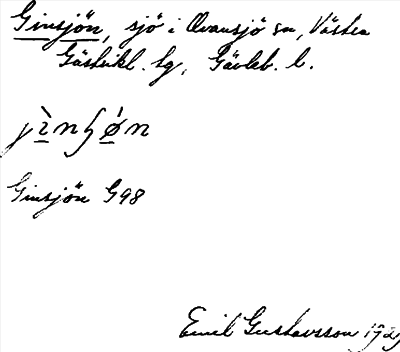 Ginsjön, sjö i Ovansjö sn, Västra
Gästrikl. tg, Gävleb. l.
jìnʃǿn
Ginsjön G98
Emil Gustavsson